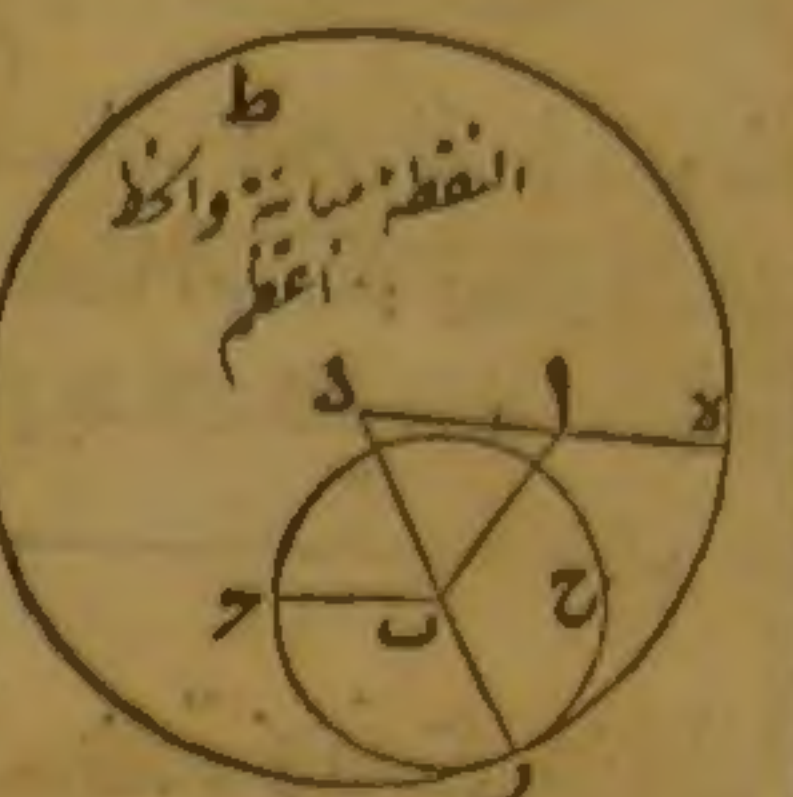 ط
النقطة مباينة والخط
أعظم
د
ا
ه
ح
ب
ج
ر